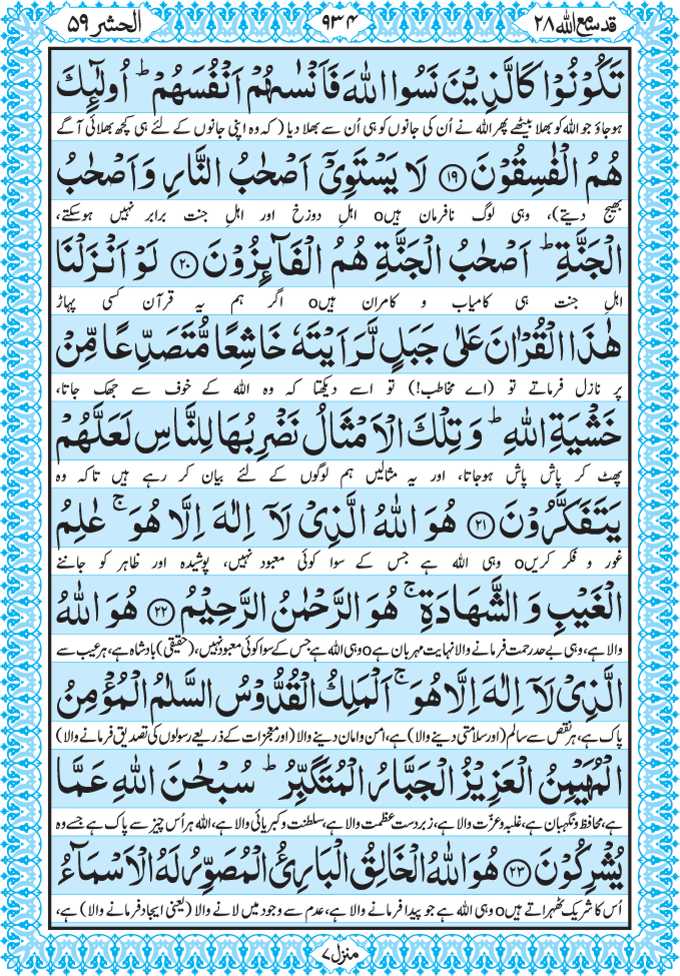 قد سمع الله ٢٨
٩٣٤
الحشر ٥٩
تَكُوْنُوْا كَالَّذِيْنَ نَسُوا اللّٰهَ فَاَنْسٰىهُمْ اَنْفُسَهُمْ ؕ اُولٰٓئِكَ
ہوجاؤ جو اللہ کو بھلا بیٹھے پھر اللہ نے اُن کی جانوں کو ہی اُن سے بھلا دیا ( کہ وہ اپنی جانوں کے لئے ہی کچھ بھلائی آگے
هُمُ الْفٰسِقُوْنَ ۝۱۹ لَا يَسْتَوِيْٓ اَصْحٰبُ النَّارِ وَاَصْحٰبُ
بھیج دیتے)، وہی لوگ نافرمان ہیںo اہلِ دوزخ اور اہلِ جنت برابر نہیں ہوسکتے،
الْجَنَّةِ ؕ اَصْحٰبُ الْجَنَّةِ هُمُ الْفَآئِزُوْنَ ۝۲۰ لَوْ اَنْزَلْنَا
اہلِ جنت ہی کامیاب و کامران ہیںo اگر ہم یہ قرآن کسی پہاڑ
هٰذَا الْقُرْاٰنَ عَلٰى جَبَلٍ لَّرَاَيْتَهٗ خَاشِعًا مُّتَصَدِّعًا مِّنْ
پر نازل فرماتے تو (اے مخاطب!) تو اسے دیکھتا کہ وہ اللہ کے خوف سے جھک جاتا،
خَشْيَةِ اللّٰهِ ؕ وَتِلْكَ الْاَمْثَالُ نَضْرِبُهَا لِلنَّاسِ لَعَلَّهُمْ
پھٹ کر پاش پاش ہوجاتا، اور یہ مثالیں ہم لوگوں کے لئے بیان کر رہے ہیں تاکہ وہ
يَتَفَكَّرُوْنَ ۝۲۱ هُوَ اللّٰهُ الَّذِيْ لَآ اِلٰهَ اِلَّا هُوَ ۚ عٰلِمُ
غور و فکر کریںo وہی اللہ ہے جس کے سوا کوئی معبود نہیں، پوشیدہ اور ظاہر کو جاننے
الْغَيْبِ وَالشَّهَادَةِ ۚ هُوَ الرَّحْمٰنُ الرَّحِيْمُ ۝۲۲ هُوَ اللّٰهُ
والا ہے، وہی بے حد رحمت فرمانے والا نہایت مہربان ہےo وہی اللہ ہے جس کے سوا کوئی معبود نہیں، (حقیقی) بادشاہ ہے، ہر عیب سے
الَّذِيْ لَآ اِلٰهَ اِلَّا هُوَ ۚ اَلْمَلِكُ الْقُدُّوْسُ السَّلٰمُ الْمُؤْمِنُ
پاک ہے، ہر نقص سے سالم (اور سلامتی دینے والا) ہے، امن و امان دینے والا (اور معجزات کے ذریعے رسولوں کی تصدیق فرمانے والا)
الْمُهَيْمِنُ الْعَزِيْزُ الْجَبَّارُ الْمُتَكَبِّرُ ؕ سُبْحٰنَ اللّٰهِ عَمَّا
ہے، محافظ و نگہبان ہے، غلبہ و عزّت والا ہے، زبردست عظمت والا ہے، سلطنت و کبریائی والا ہے، اللہ ہر اُس چیز سے پاک ہے جسے وہ
يُشْرِكُوْنَ ۝۲۳ هُوَ اللّٰهُ الْخَالِقُ الْبَارِئُ الْمُصَوِّرُ لَهُ الْاَسْمَآءُ
اُس کا شریک ٹھہراتے ہیںo وہی اللہ ہے جو پیدا فرمانے والا ہے، عدم سے وجود میں لانے والا (یعنی ایجاد فرمانے والا) ہے،
منزل ۷